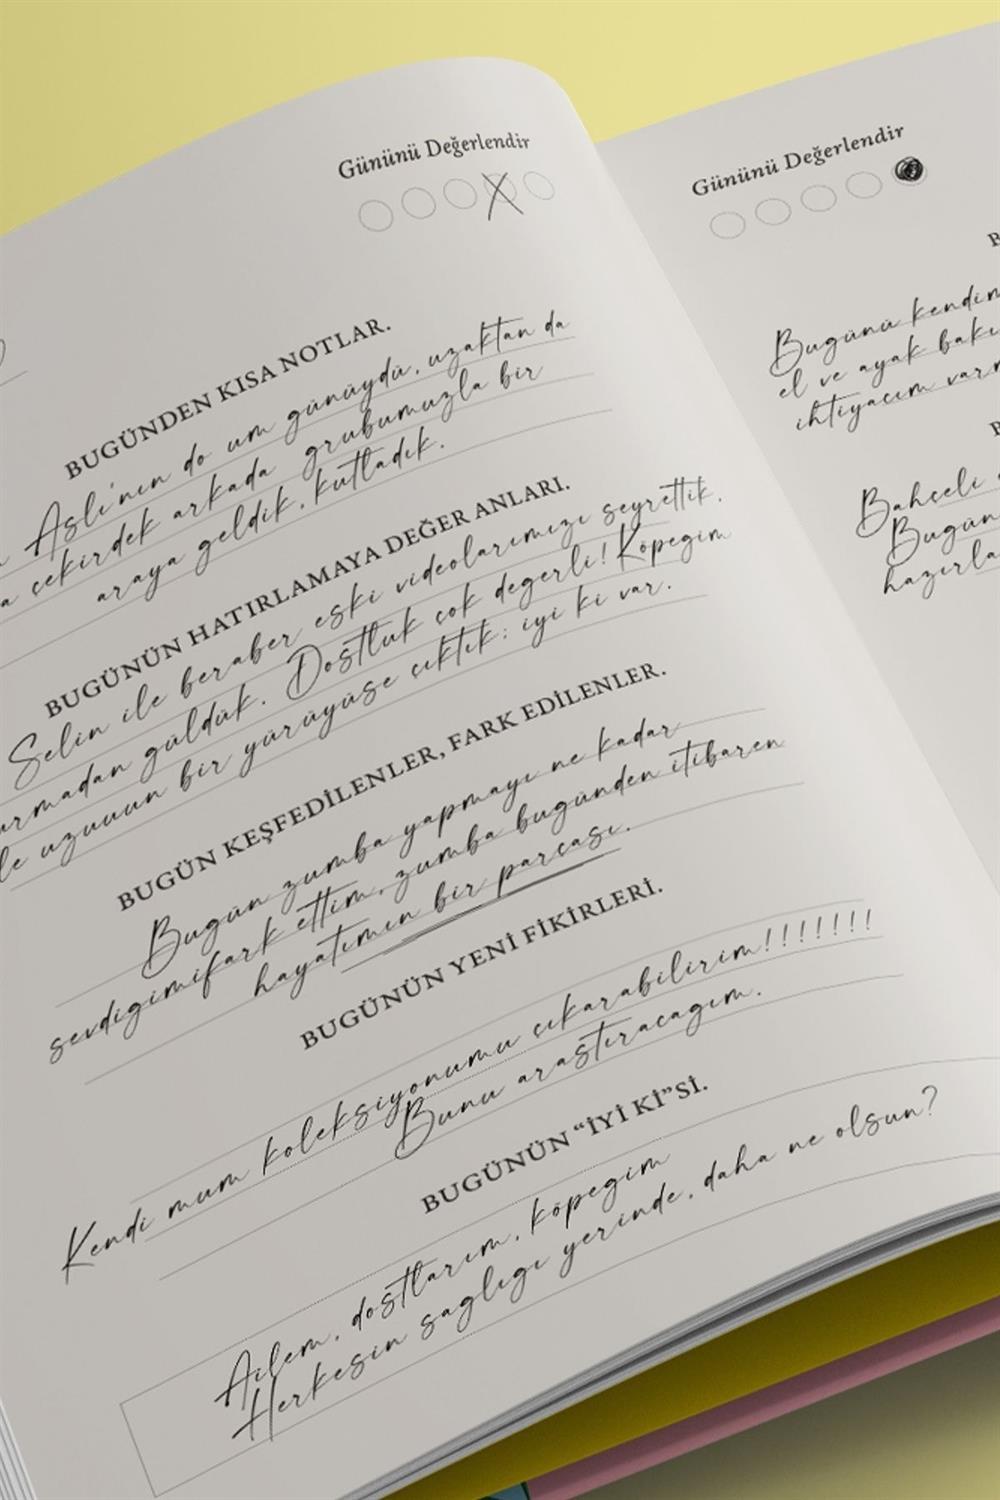 Gününü Değerlendir
BUGÜNDEN KISA NOTLAR.
Aslı'nın do um günüydü, uzaktan da
çekirdek arkada grubumuzla bir
araya geldik, kutladık.
BUGÜNÜN HATIRLAMAYA DEĞER ANLARI.
Selin ile beraber eski videolarımızı seyrettik.
güldük. Dostluk çok degerli! Köpegim
uzuuun bir yürüyüse çıktık; iyi ki var.
BUGÜN KEŞFEDİLENLER, FARK EDİLENLER.
Bugün zumba yapmayı ne kadar
sevdigimifark ettim, zumba bugünden itibaren
hayatımın bir parçası.
BUGÜNÜN YENİ FİKİRLERİ.
Kendi mum koleksiyonumu çıkarabilirim!!!!!!!
Bunu arastıracagım.
BUGÜNÜN “İYİ Kİ”Sİ.
Ailem, dostlarım, köpegim
Herkesin saglıgı yerinde, daha ne olsun?
Gününü Değerlendir
B
Bugünü kendim
el ve ayak bakı
ihtiyacım varm
B
Bahçeli
Bugün
hazırla